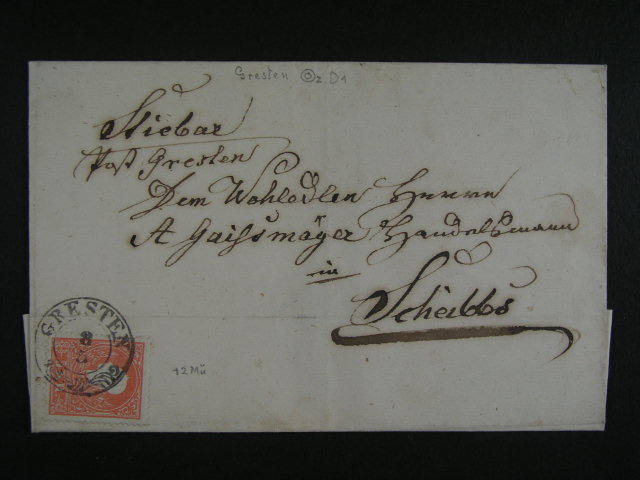 Gresten O2 D1
Stiebar
Post Gresten
Dem Wohledlen Herrn
A Gaissmäyer Handelsmann
in
Scheibbs
GRESTEN
8
12 Mü